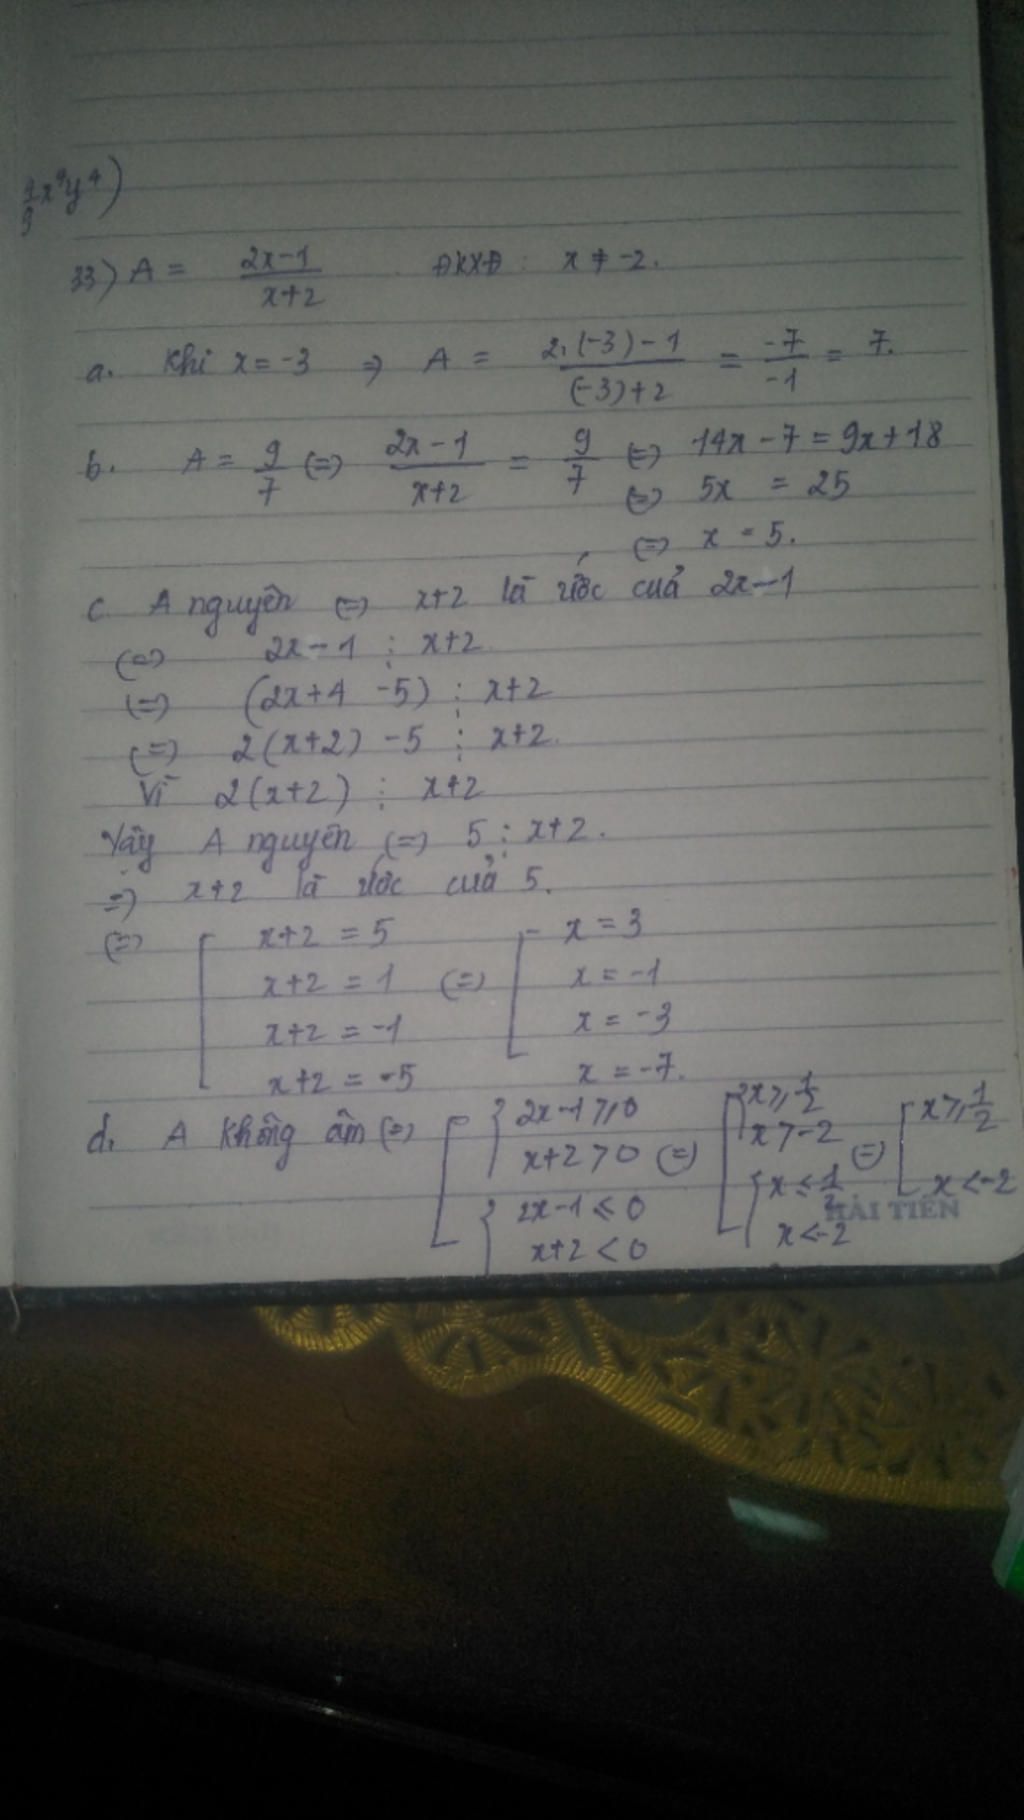 1/3 x⁹y⁴)
33) A = (2x-1)/(x+2) ĐKXĐ : x ≠ -2.
a. Khi x = -3 => A = (2.(-3)-1)/((-3)+2) = -7/-1 = 7.
b. A = 9/7 (=) (2x-1)/(x+2) = 9/7 (=) 14x - 7 = 9x + 18
(=) 5x = 25
(=) x = 5.
c. A nguyên (=) x+2 là ước cuả 2x-1
(=) 2x-1 ⋮ x+2.
(=) (2x+4 -5) ⋮ x+2
(=) 2(x+2) -5 ⋮ x+2.
Vì 2(x+2) ⋮ x+2
Vậy A nguyên (=) 5 ⋮ x+2.
=) x+2 là ước cuả 5.
(=) [ x+2 = 5 [ x = 3
x+2 = 1 (=) x = -1
x+2 = -1 x = -3
x+2 = -5 x = -7.
d. A không âm (=) [ { 2x-1 ⩾ 0 [ { x ⩾ 1/2 [ x ⩾ 1/2
x+2 > 0 (=) x > -2 (=)
{ 2x-1 ⩽ 0 { x ⩽ 1/2 x < -2
x+2 < 0 x < -2
HẢI TIẾN